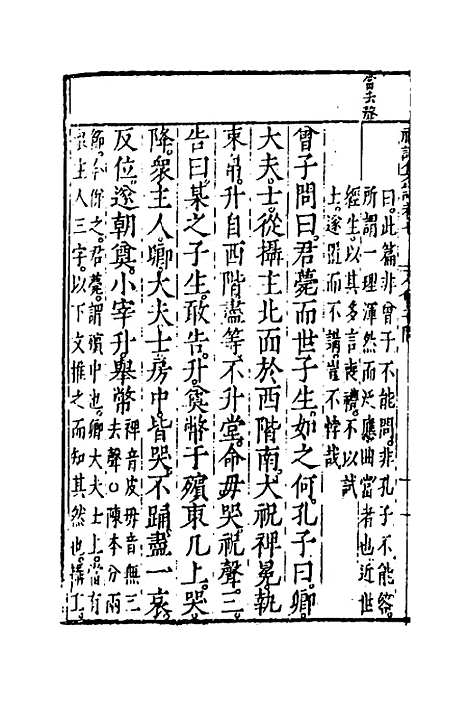 曰此篇非曾子不能問非孔子不能答
所謂一理渾然而泛應曲當者也近世
經生以其多言喪禮不以試
士遂置而不講豈不悖哉
曾子問曰君薨而世子生如之何孔子曰卿
大夫士從攝主北面於西階南大祝裨冕執
束帛升自西階盡等不升堂命毋哭祝聲三
告曰某之子生敢告升奠幣于殯東几上哭
降衆主人卿大夫士房中皆哭不踊盡一哀
反位遂朝奠小宰升舉幣 裨音皮毋音無三
去聲○陳本分兩
節今倂之君薨謂殯中也卿大夫士上舊有
衆主人三字以下文推之而知其然也攝主